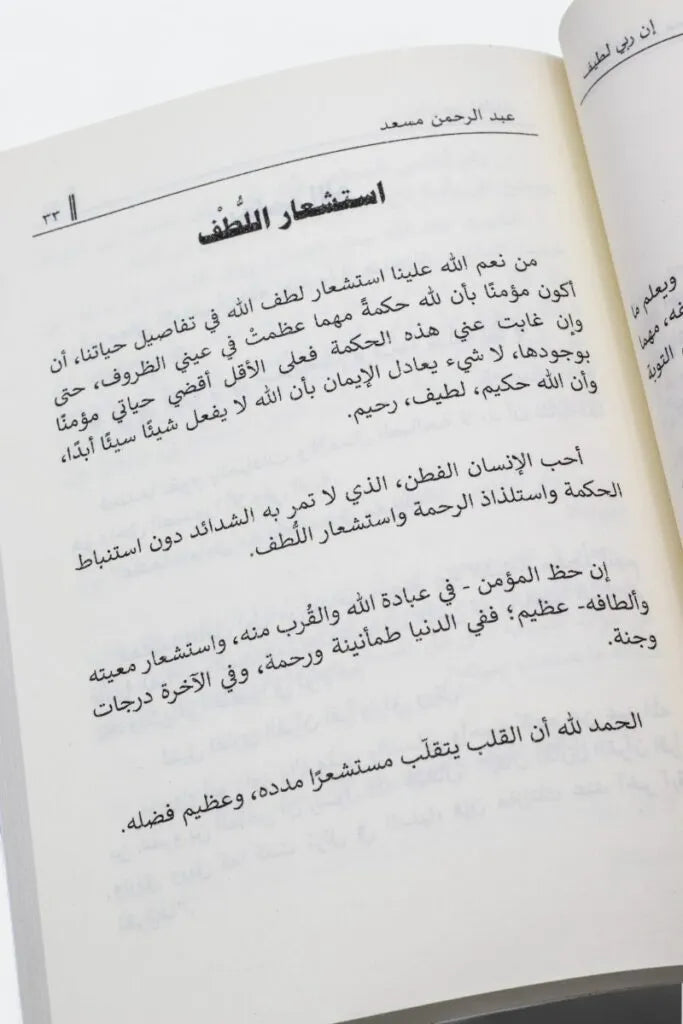 إن ربي لطيف
ويعلم ما
مهما
التوبة
عبد الرحمن مسعد
٣٣
استشعار اللُّطفْ
من نعم الله علينا استشعار لطف الله في تفاصيل حياتنا، أن
أكون مؤمنًا بأن لله حكمةً مهما عظمتْ في عيني الظروف، حتى
وإن غابت عني هذه الحكمة فعلى الأقل أقضي حياتي مؤمنًا
بوجودها، لا شيء يعادل الإيمان بأن الله لا يفعل شيئًا سيئًا أبدًا،
وأن الله حكيم، لطيف، رحيم.
أحب الإنسان الفطن، الذي لا تمر به الشدائد دون استنباط
الحكمة واستلذاذ الرحمة واستشعار اللُّطف.
إن حظ المؤمن - في عبادة الله والقُرب منه، واستشعار معيته
وألطافه- عظيم؛ ففي الدنيا طمأنينة ورحمة، وفي الآخرة درجات
وجنة.
الحمد لله أن القلب يتقلّب مستشعرًا مدده، وعظيم فضله.